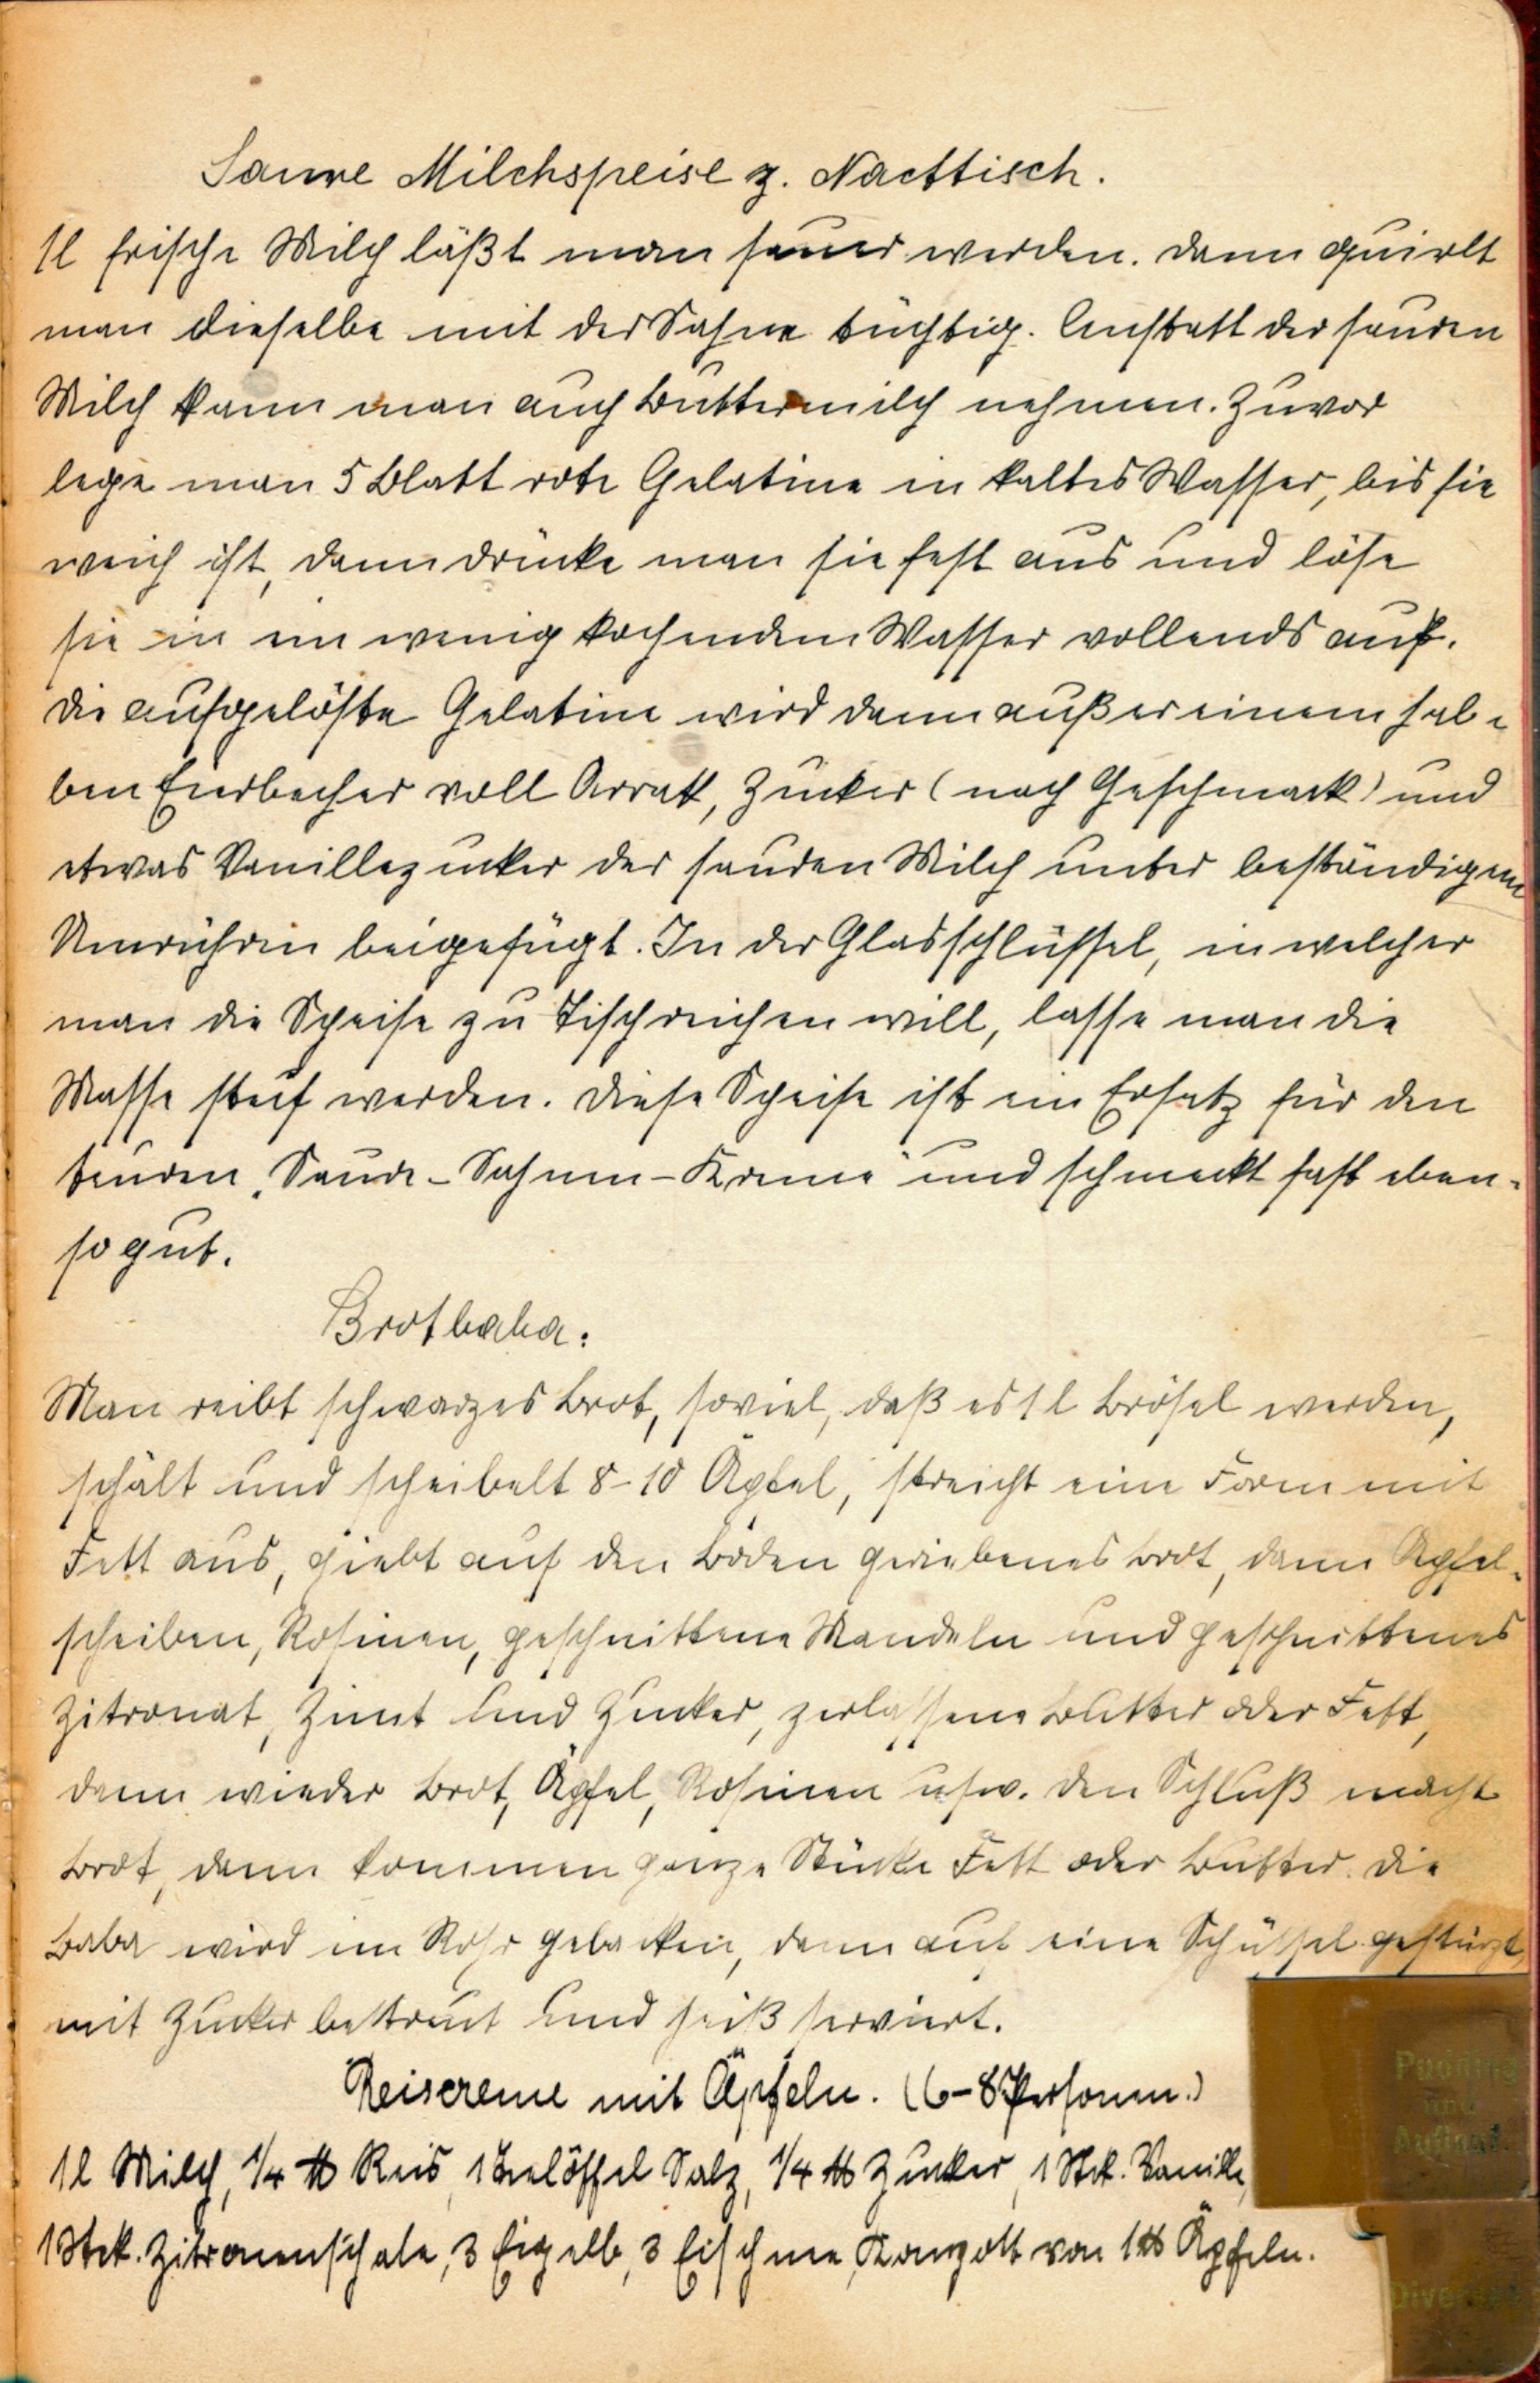 Saure Milchspeise z. Nachtisch.
1l frische Milch läßt man sauer werden. Dann quirlt
man dieselbe mit der Sahne tüchtig. Anstatt der sauren
Milch kann man auch Buttermilch nehmen. Zuvor
lege man 5 Blatt rote Gelatine in kaltes Wasser, bis sie
weich ist, dann drücke man sie fest aus und löse
sie in ein wenig kochendem Wasser vollends auf.
Die aufgelöste Gelatine wird dann außer einem hal-
ben Eierbecher voll Arrak, Zucker (nach Geschmack) und
etwas Vanillezucker der sauren Milch unter beständigem
Umrühren beigefügt. In der Glasschlüssel, in welcher
man die Speise zu Tisch reichen will, lasse man die
Masse steif werden. Diese Speise ist ein Ersatz für den
teuren „Saure-Sahnen-Kreme“ und schmeckt fast eben-
so gut.
Brotbaba:
Man reibt schwarzes Brot, soviel, daß es 1 l Brösel werden,
schält und scheibelt 8-10 Äpfel, streicht eine Form mit
Fett aus, giebt auf den Boden geriebenes Brot, dann Apfel-
scheiben, Rosinen, geschnittene Mandeln und geschnittenes
Zitronat, Zimt und Zucker, zerlassene Butter oder Fett,
dann wieder Brot, Äpfel, Rosinen usw. Den Schluß macht
Brot, dann kommen ganze Stücke Fett oder Butter. Die
Baba wird im Rohr gebacken, dann auf eine Schüssel gestürzt,
mit Zucker bestreut und heiß serviert.
Reiscreme mit Äpfeln. (6-8 Personen.)
1l Milch, 1/4 ℔ Reis, 1 Teelöffel Salz, 1/4 ℔ Zucker, 1 Stck. Vanille,
1 Stck. Zitronenschale, 3 Eigelb, 3 Eischnee, Kompott von 1 ℔ Äpfeln.
Pudding
und
Auflauf.